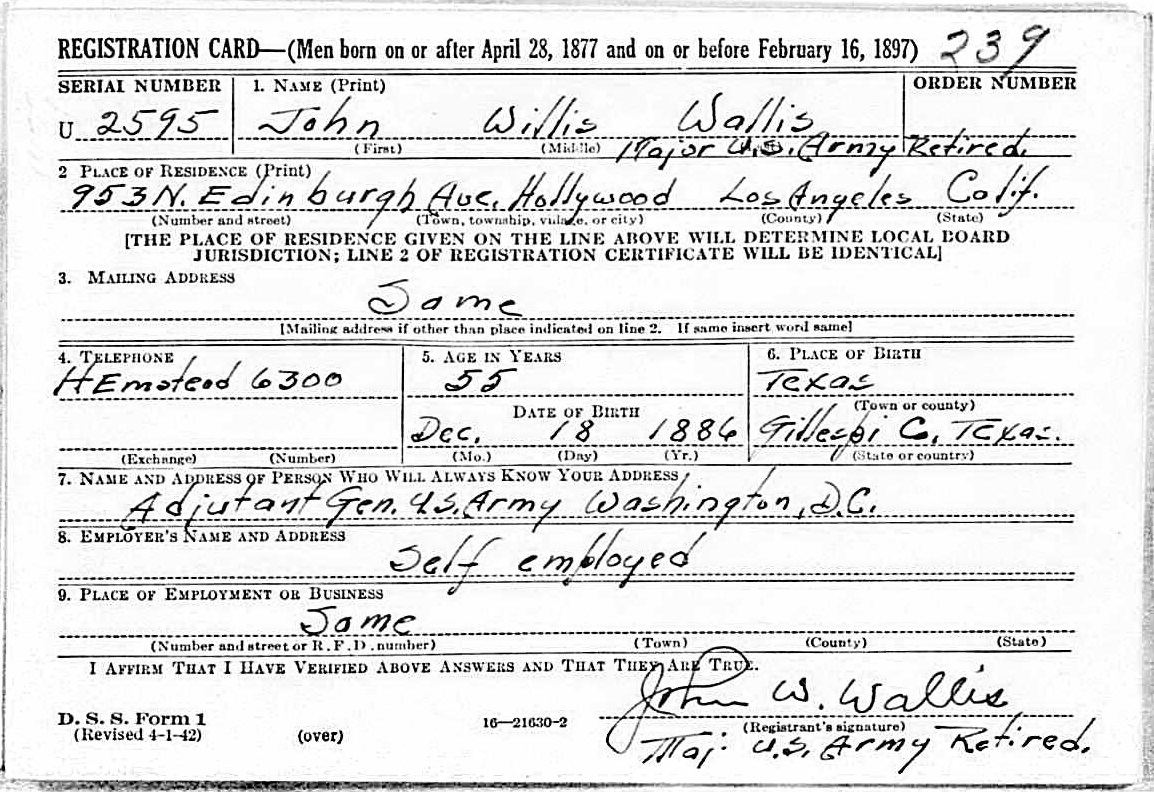 REGISTRATION CARD—(Men born on or after April 28, 1877 and on or before February 16, 1897) 239
SERIAL NUMBER 1. NAME (Print) ORDER NUMBER
U 2595 John Willis Wallis
(First) (Middle) Major U.S. Army Retired.
2 PLACE OF RESIDENCE (Print)
953 N. Edinburgh Ave. Hollywood Los Angeles Calif.
(Number and street) (Town, township, village, or city) (County) (State)
[THE PLACE OF RESIDENCE GIVEN ON THE LINE ABOVE WILL DETERMINE LOCAL BOARD
JURISDICTION; LINE 2 OF REGISTRATION CERTIFICATE WILL BE IDENTICAL]
3. MAILING ADDRESS
Same
[Mailing address if other than place indicated on line 2. If same insert word same]
4. TELEPHONE 5. AGE IN YEARS 6. PLACE OF BIRTH
HEmstead 6300 55 Texas
DATE OF BIRTH (Town or county)
Dec. 18 1886 Gillespi Co, Texas.
(Exchange) (Number) (Mo.) (Day) (Yr.) (State or country)
7. NAME AND ADDRESS OF PERSON WHO WILL ALWAYS KNOW YOUR ADDRESS
Adjutant Gen. U.S. Army Washington, D.C.
8. EMPLOYER'S NAME AND ADDRESS
Self employed
9. PLACE OF EMPLOYMENT OR BUSINESS
Same
(Number and street or R. F. D. number) (Town) (County) (State)
I AFFIRM THAT I HAVE VERIFIED ABOVE ANSWERS AND THAT THEY ARE TRUE.
John W. Wallis
D. S. S. Form 1 16—21630-2 (Registrant's signature)
(Revised 4-1-42) (over) Maj. U.S. Army Retired.